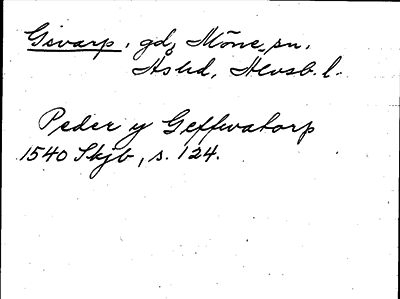 Gisvarp, gd, Möne sn.
Åshd, Älvsb. l.
Peder y Geffwatorp
1540 Skjb, s. 124.